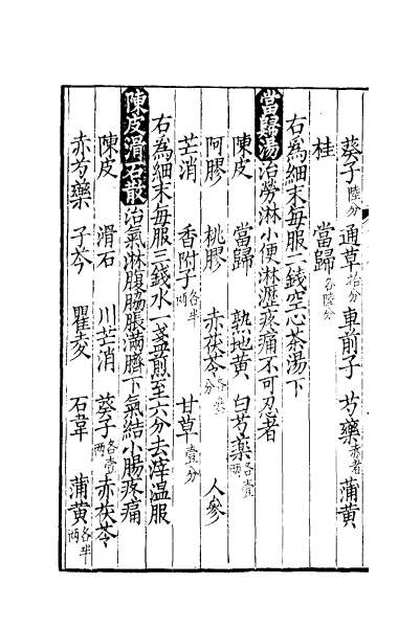 葵子陸分 通草拾分 車前子 芍藥赤者 蒲黄
桂 當歸各陸分
右為細末每服二錢空心茶湯下
當歸湯治勞淋小便淋瀝疼痛不可忍者
陳皮 當歸 熟地黄 白芍藥各壹兩
阿膠 桃膠 赤茯苓 人參
芒消 香附子各半兩 甘草壹分
右為細末每服三錢水一盞煎至六分去滓温服
陳皮滑石散治氣淋腹脇脹滿臍下氣結小腸疼痛
陳皮 滑石 川芒消 葵子各壹兩 赤茯苓
赤芍藥 子芩 瞿麦 石韋 蒲黄各半兩